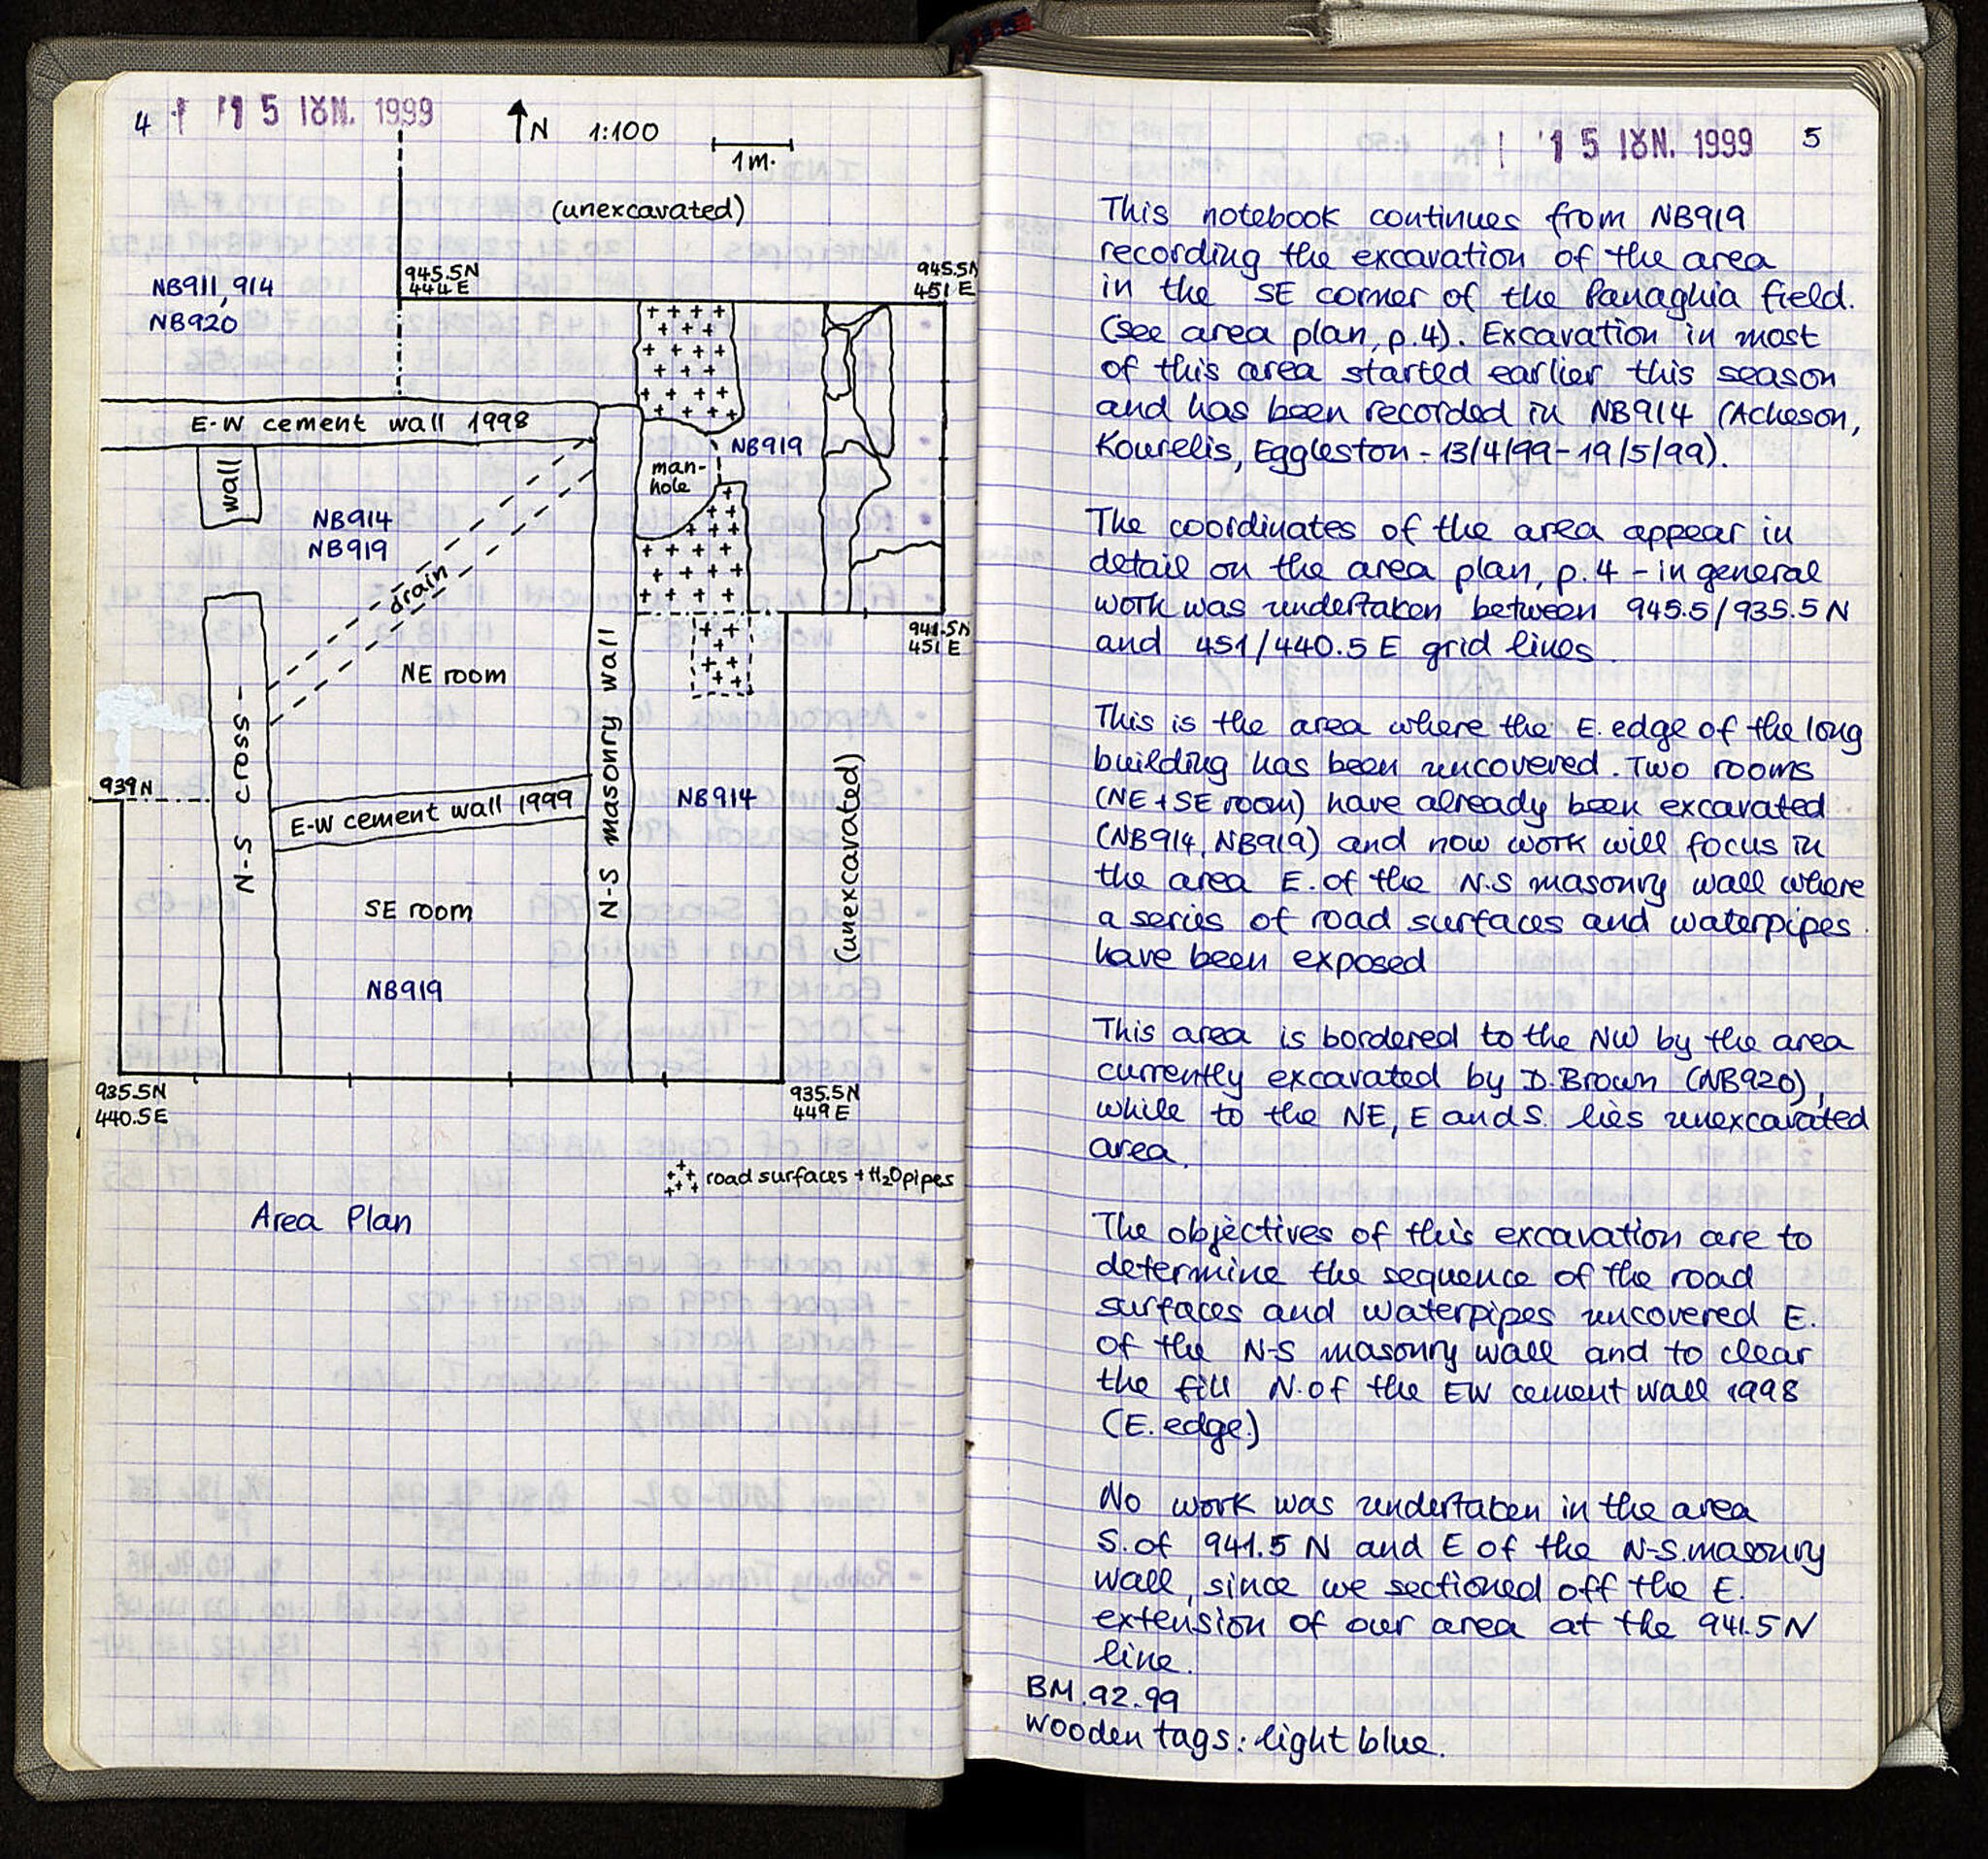 4 15 ΙΟΥΝ. 1999
N 1:100
1m.
(unexcavated)
NB911, 914
NB920
945.5N
444E
945.5N
451E
E-W cement wall 1998
NB919
wall
man-
hole
NB914
NB919
drain
941.5N
451E
NE room
N-S cross-
N-S masonry wall
939N
E-W cement wall 1999
NB914
(unexcavated)
SE room
NB919
935.5N
440.5E
935.5N
449E
road surfaces + H₂O pipes
Area Plan
15 ΙΟΥΝ. 1999 5
This notebook continues from NB919
recording the excavation of the area
in the SE corner of the Panaghia field.
(see area plan, p.4). Excavation in most
of this area started earlier this season
and has been recorded in NB914 (Acheson,
Kourelis, Eggleston - 13/4/99-19/5/99).
The coordinates of the area appear in
detail on the area plan, p.4 - in general
work was undertaken between 945.5/935.5N
and 451/440.5E grid lines.
This is the area where the E. edge of the long
building has been uncovered. Two rooms
(NE + SE room) have already been excavated
(NB914, NB919) and now work will focus in
the area E. of the N.S masonry wall where
a series of road surfaces and waterpipes
have been exposed
This area is bordered to the NW by the area
currently excavated by D. Brown (NB920),
while to the NE, E and S. lies unexcavated
area.
The objectives of this excavation are to
determine the sequence of the road
surfaces and waterpipes uncovered E.
of the N-S masonry wall and to clear
the fill N. of the EW cement wall 1998
(E. edge.)
No work was undertaken in the area
S. of 941.5 N and E of the N-S. masonry
wall, since we sectioned off the E.
extension of our area at the 941.5 N
line.
BM. 92.99
Wooden tags: light blue.